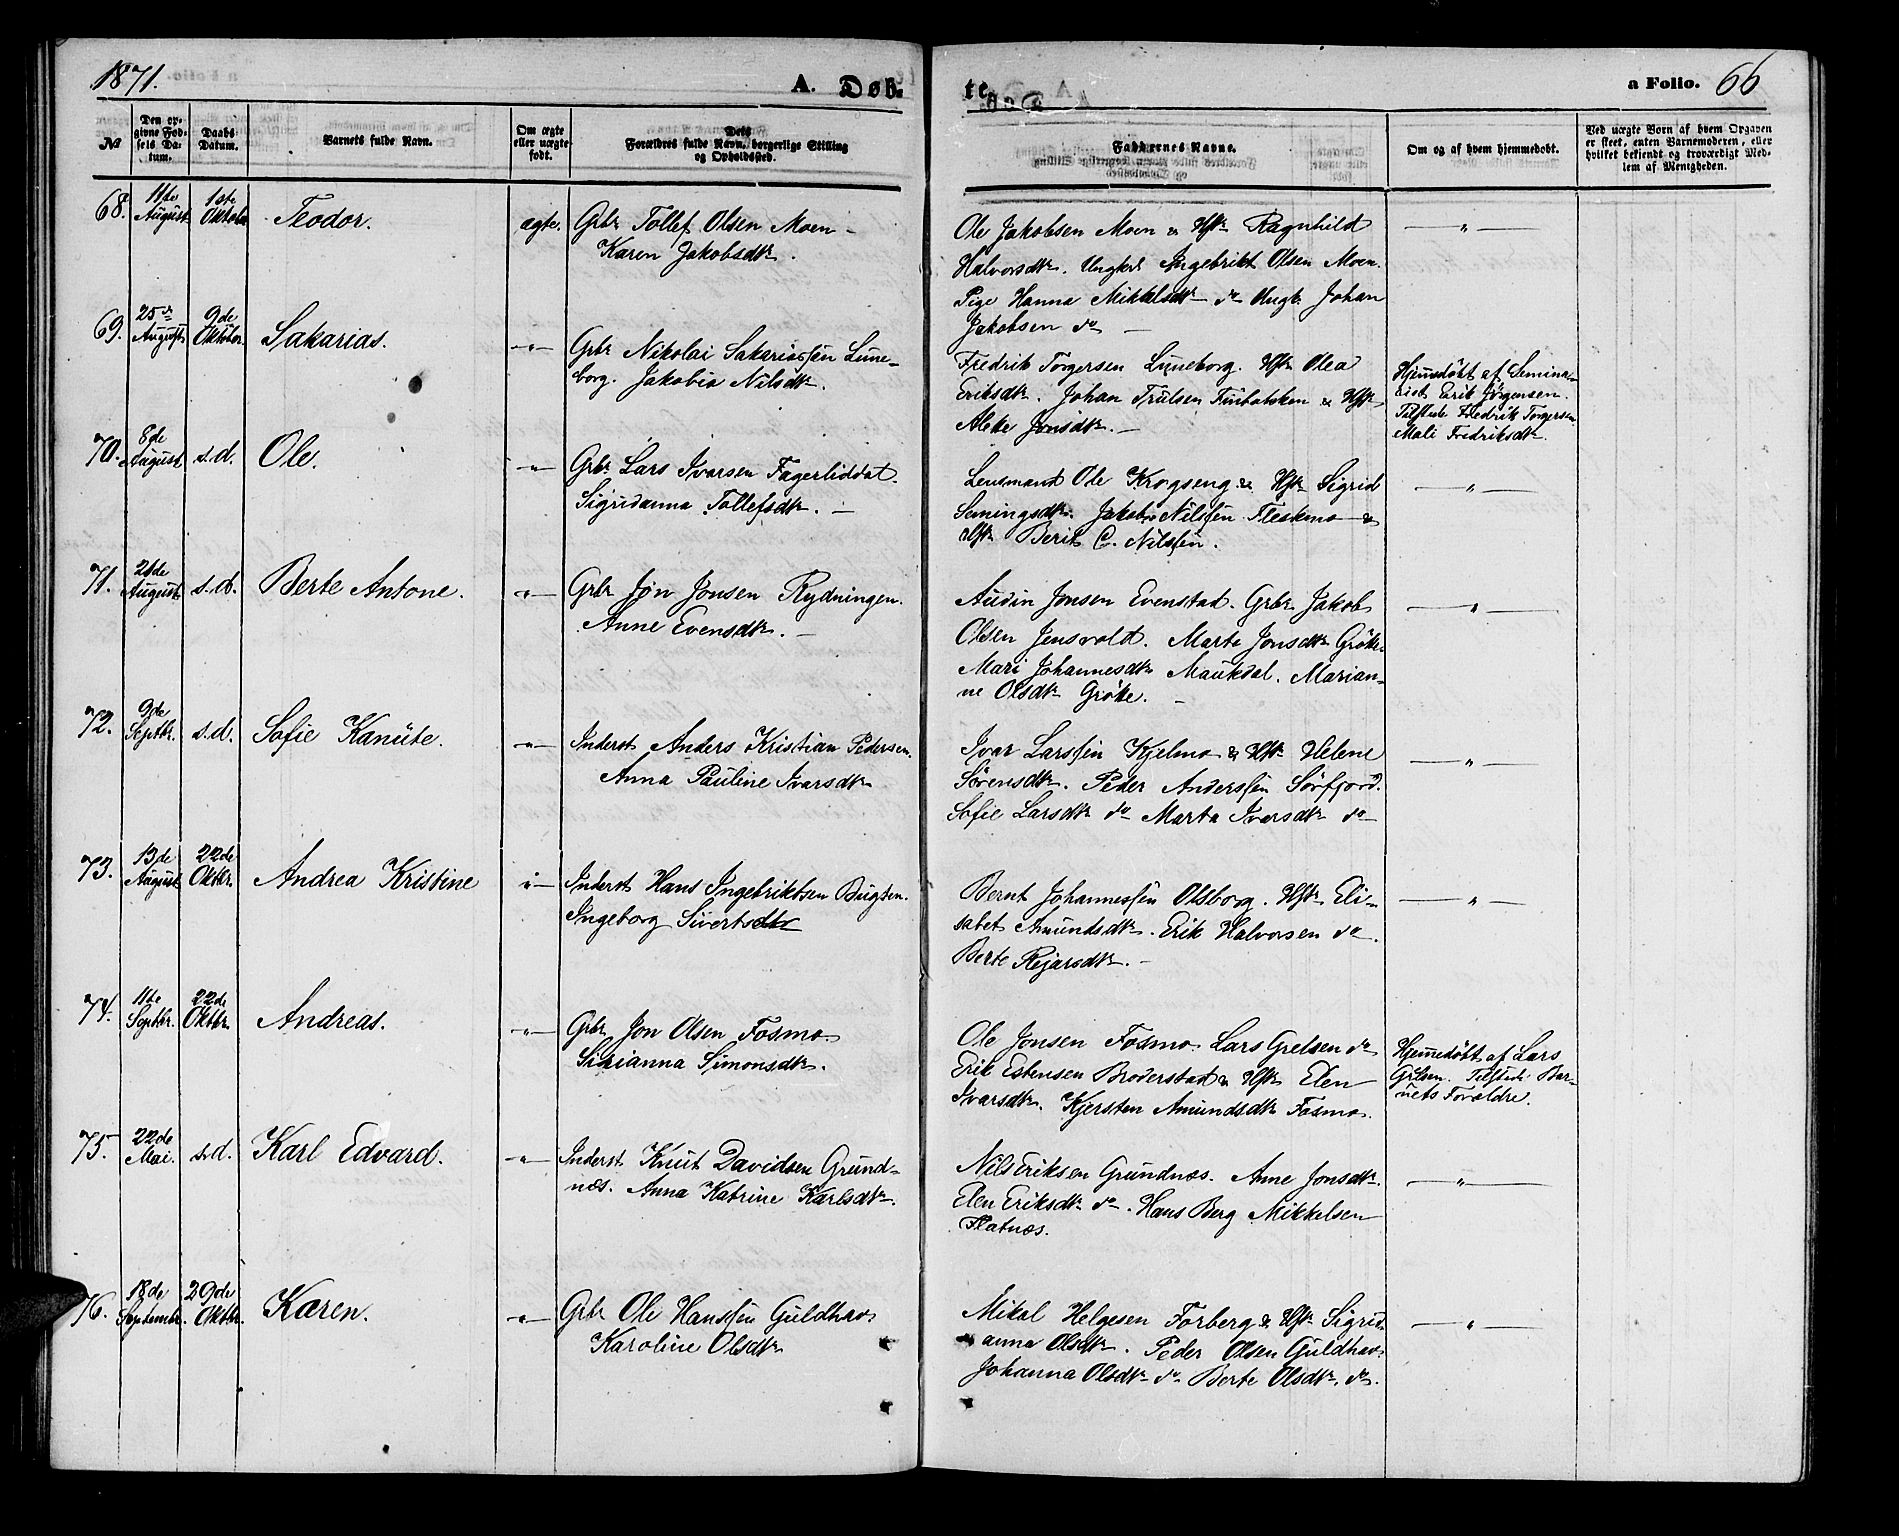 1871.
A. Døb-
te.
a Folio. 66
№
Den op-
givne Fød-
sels Da-
tum.
Daabs-
Datum.
Barnets fulde Navn.
Om ægte
eller uægte
født.
Dets
Forældres fulde Navn, borgerlige Stilling
og Opholdssted.
Faddernes Navne.
Om og af hvem hjemmedøbt.
Ved uægte Børn af hvem Opgaven
er skeet, enten Barnemoderen, eller
hvilket bekjendt og troværdigt Med-
lem af Menigheden.
68. 11te August 1ste Oktober Teodor. ægte. Grbr Tollef Olsen Moen –
Karen Jakobsdtr.
Ole Jakobsen Moen & Hstr Ragnhild
Halvorsdtr. Ungkarl Ingebrikt Olsen Moen.
Pige Hanna Mikkelsdtr do Ungk. Johan
Jakobsen do –
— " —
69. 25de August 9de Oktober. Sakarias. —"— Grbr Nikolai Sakariassen Lune-
borg. Jakobia Nilsdtr.
Fredrik Torgersen Luneborg. Hstr Olea
Eriksdtr. Johan Trulsen Finbakken & Hstr
Aleke Jonsdtr. –
Hjemmedøbt af Semina-
rist Erik Jørgensen.
Tilstede Fredrik Torgersen
Mali Fredriksdtr.
70. 8de August s.d. Ole. —"— Grbr Lars Ivarsen Fagerliddal.
Sigridanna Tollefsdtr. –
Lensmand Ole Krogseng & Hstr Sigrid
Semingsdtr. Jakob Nilssen Fleskmo &
Hstr Berit C. Nilssen.
— " —
71. 21de August s.d. Berte Antone. —"— Grbr Jøn Jonsen Rydningen.
Anne Evensdtr. –
Audin Jonsen Evenstad. Grbr Jakob
Olsen Jensvold. Marte Jonsdtr Grøtte.
Mari Johannesdtr Maukdal. Marian-
ne Olsdtr Grøtte. –
— " —
72. 9de Septbr. s.d. Sofie Kanüte. —"— Inderst Anders Kristian Pedersen.
Anna Pauline Ivarsdtr
Ivar Larssen Kjelmo & Hstr Helene
Sørensdtr. Peder Anderssen Sørfjord.
Sofie Larsdtr do Marta Ivarsdtr do
— " —
73. 13de August 22de Oktbr. Andrea Kristine —"— Inderst Hans Ingebriktsen Bugten.
Ingeborg Sivertsdtr
Bernt Johannessen Olsborg. Hstr Eli-
sabet Amundsdtr. Erik Halvorsen do.
Berte Rejarsdtr. –
— " —
74. 11te Septbr. 22de Oktbr. Andreas. —"— Grbr Jon Olsen Fosmo
Sirianna Simonsdtr.
Ole Jonsen Fosmo. Lars Grelsen do
Erik Estensen Broderstad & Hstr Elen
Ivarsdtr. Kjersten Amundsdtr Fosmo.
Hjemmedøbt af Lars
Grelsen. Tilstede Bar-
nets Forældre.
75. 22de Mai. s.d. Karl Edvard. —"— Inderst Knut Davidsen Grund-
næs. Anna Katrine Karlsdtr.
Nils Eriksen Grundnæs. Anne Jonsdtr.
Elen Eriksdtr do. Hans Berg Mikkelsen
Flatnæs.
— " —
76. 18de Septembr. 29de Oktbr. Karen. —"— Grbr Ole Hanssen Guldhav
Karoline Olsdtr
Mikal Helgesen Forberg & Hstr Sigrid-
anna Olsdtr. Peder Olsen Guldhav.
Johanna Olsdtr do Berte Olsdtr. do.
— " —